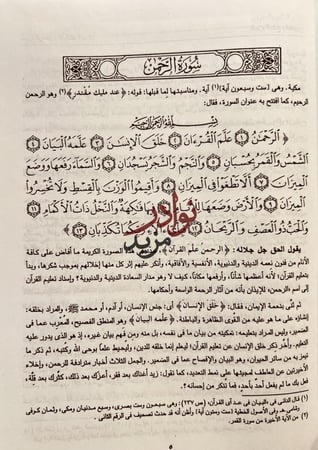 سورة الرحمن
مكية. وهى [ست وسبعون آية](١) آية. ومناسبتها لما قبلها: قوله: ﴿عند مليك مقتدر﴾(٢) وهو الرحمن
الرحيم، كما افتتح به عنوان السورة، فقال:
بسم الله الرحمن الرحيم
﴿الرحمن ١ علم القرءان ٢ خلق الإنسن ٣ علمه البيان ٤
الشمس والقمر بحسبان ٥ والنجم والشجر يسجدان ٦ والسماء رفعها ووضع
الميزان ٧ ألا تطغوا فى الميزان ٨ وأقيموا الوزن بالقسط ولا تخسروا
الميزان ٩ فيها فكهة والنخل ذات الأكمام ١١
والحب ذو العصف والريحان ١٢ تكذبان ١٣﴾
نوادر
مريد
يقول الحق جل جلاله: ﴿الرحمن علم القرآن﴾، هذه السورة الكريمة ما أفاض على كافة
الأنام من فنون نعمه الدينية والدنيوية، والأنفسية والآفاقية، وأنكر عليهم إثر كل منها إخلالهم بموجب شكرها، وبدأ
بتعليم القرآن؛ لأنه أعظمها شأناً، وأرفعها مكاناً، كيف لا وهو مدار السعادة الدينية والدنيوية؟ وإسناد تعليم القرآن
إلى اسم ﴿الرحمن﴾ للإيذان بأنه من آثار الرحمة الواسعة وأحكامها.
ثم ثنى بنعمة الإيمان، فقال: ﴿خلق الإنسان﴾ أى: جنس الإنسان، أو آدم، أو محمد ﷺ، والمراد بخلقه:
إنشاؤه على ما هو عليه من القوى الظاهرة والباطنة. ﴿علمه البيان﴾ وهو المنطق الفصيح، المعرب عما فى
الضمير، وليس المراد بتعليمه: تمكينه من بيان ما فى نفسه، بل منه ومن فهم بيان غيره، إذ هو الذى يدور عليه
التعليم. وأخر ذكر خلق الإنسان عن تعليم القرآن؛ ليعلم إنما خلقه للدين، وليحيط علماً بوحى الله وكتبه، ثم ذكر ما
تميز به من سائر الحيوان، وهو البيان والإفصاح عما فى الضمير. والجمل الثلاث أخبار مترادفة للرحمن، وإخلاء
الأخيرتين عن العاطف لمجيئها على نمط التعديد، كما تقول: زيد أغناك بعد فقر، أعزك بعد ذلك، كثرك بعد قلة،
فعل بك ما لم يفعل أحد بأحد، فما تنكر من إحسانه؟.
(١) قال الدانى فى «البيان فى عد آى القرآن» (ص ٢٣٧): «وهى سبعون وست بصرى، وسبع مدنيان ومكى، وثمان كوفى
وشامى». وفى الأصول الخطية [وست وستون آية] وأظن أنه قد حدث تصحيف فى الرقم الثانى.
(٢) من الآية الأخيرة من سورة القمر.